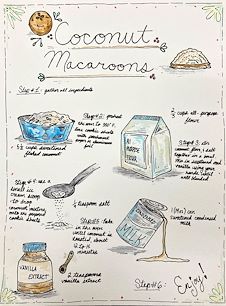 Coconut
Macaroons
Step #1: gather all ingredients
Step #2: preheat
the oven to 350° &
line cookie sheets
with parchment
paper or aluminum
foil
2/3 cup all-purpose
flour
5 1/2 cups sweetened
flaked coconut
ALL
PURPOSE
FLOUR
Step #3: stir
flour & salt
together in a bowl.
vanilla using your
hands until
well blended
Step #4: use a
small ice
cream scoop
to drop
coconut mixture
onto the prepared
cookie sheets
1/4 teaspoon salt
Step #5: bake in
the oven
until coconut is
toasted, about
minutes
MILK
1 (14oz) can
sweetened condensed
milk
VANILLA
EXTRACT
2 teaspoons
vanilla extract
Step #6:
Enjoy!